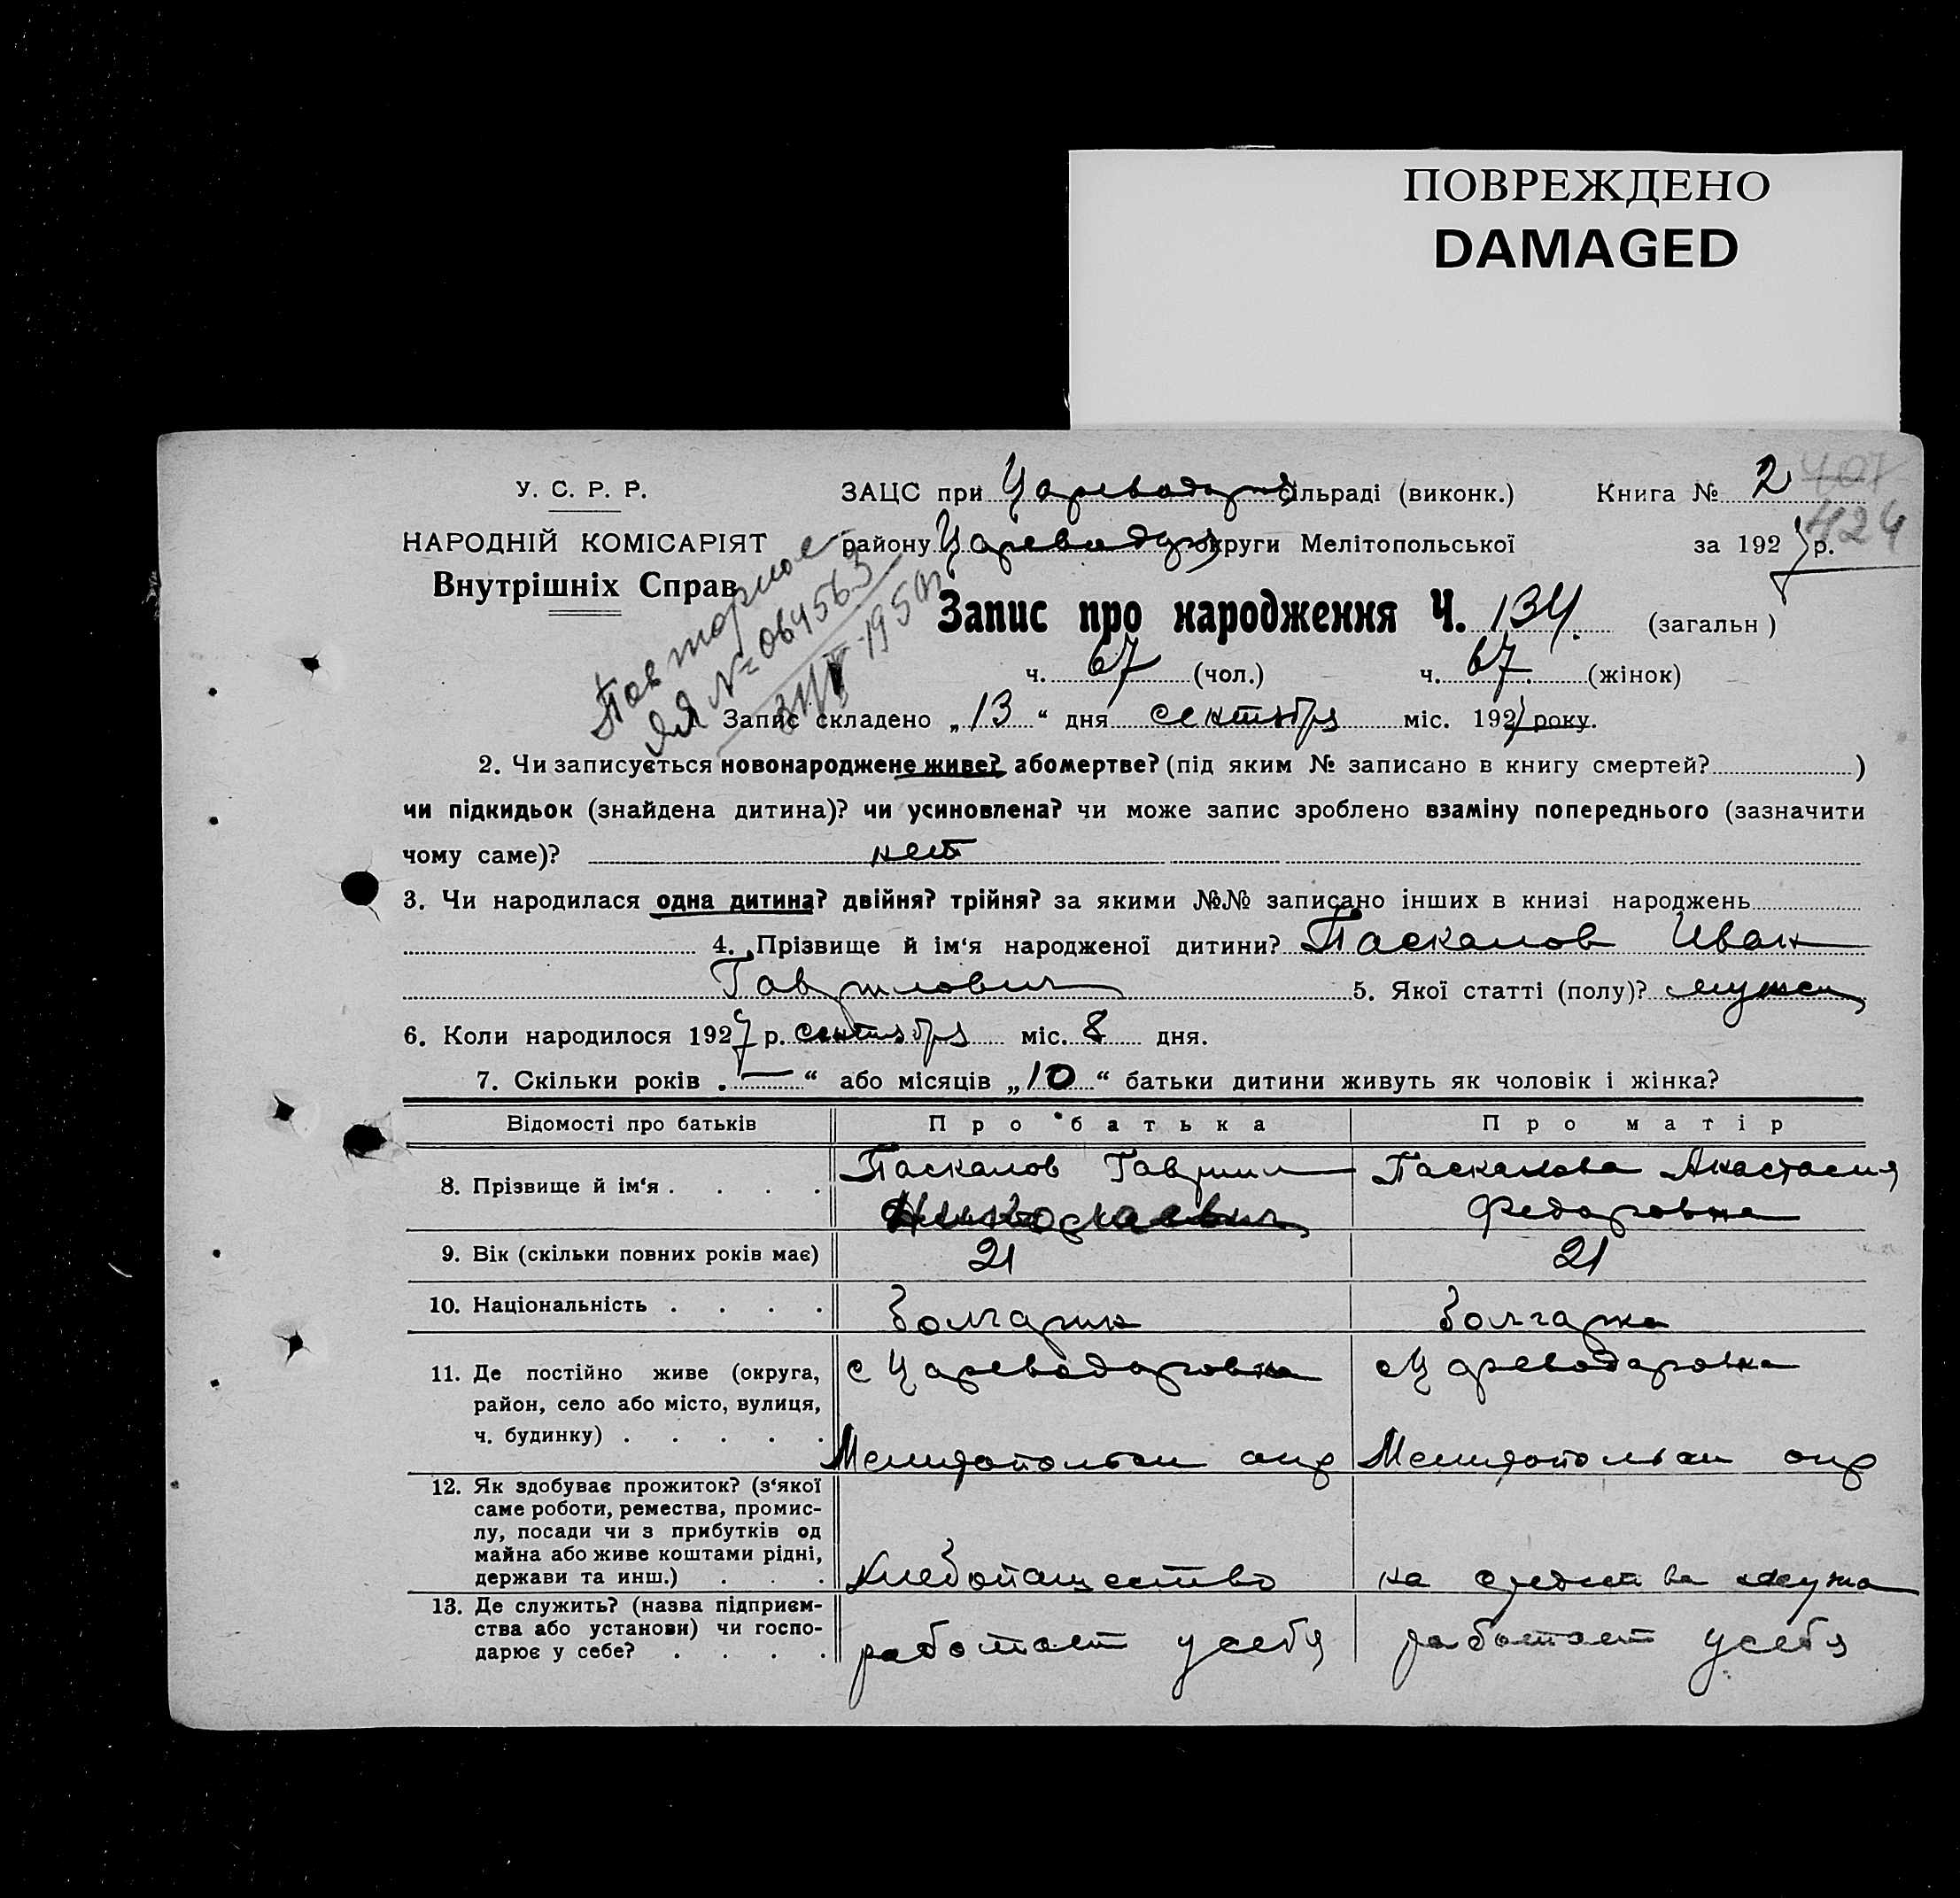 ПОВРЕЖДЕНО
DAMAGED
У. С. Р. Р.
НАРОДНІЙ КОМІСАРІЯТ
Внутрішніх Справ
ЗАЦС при Цареводар сільраді (виконк.) Книга № 2
407
району Цареводар округи Мелітопольської за 1927 р.
424
Повторное
№ 064563
1950
Запис про народження Ч. 134. (загальн)
ч. 67 (чол.) ч. 67. (жінок)
Запис складено „13“ дня сентября міс. 1927 року.
2. Чи записується новонароджене живе? або мертве? (під яким № записано в книгу смертей? )
чи підкидьок (знайдена дитина)? чи усиновлена? чи може запис зроблено взаміну попереднього (зазначити
чому саме)? нет
3. Чи народилася одна дитина? двійня? трійня? за якими №№ записано інших в книзі народжень
4. Прізвище й ім‘я народженої дитини? Паскалов Иван
Гаврилович 5. Якої статті (полу)? мужск
6. Коли народилося 1927 р. сентября міс. 8 дня.
7. Скільки років „—“ або місяців „10“ батьки дитини живуть як чоловік і жінка?
Відомості про батьків Про батька Про матір
8. Прізвище й ім‘я . . . . Паскалов Гаврил Паскалова Анастасия
Николаевич Федоровна
9. Вік (скільки повних років має) 21 21
10. Національність . . . . болгарин болгарка
11. Де постійно живе (округа, с Цареводаровка с Цареводаровка
район, село або місто, вулиця,
ч. будинку) . . . . . Мелитопольск окр Мелитопольск окр
12. Як здобуває прожиток? (з‘якої
саме роботи, ремества, промис-
лу, посади чи з прибутків од
майна або живе коштами рідні,
держави та инш.) . . . хлебопашество на средства мужа
13. Де служить? (назва підприєм-
ства або установи) чи госпо-
дарює у себе? . . . . работает у себя работает у себя